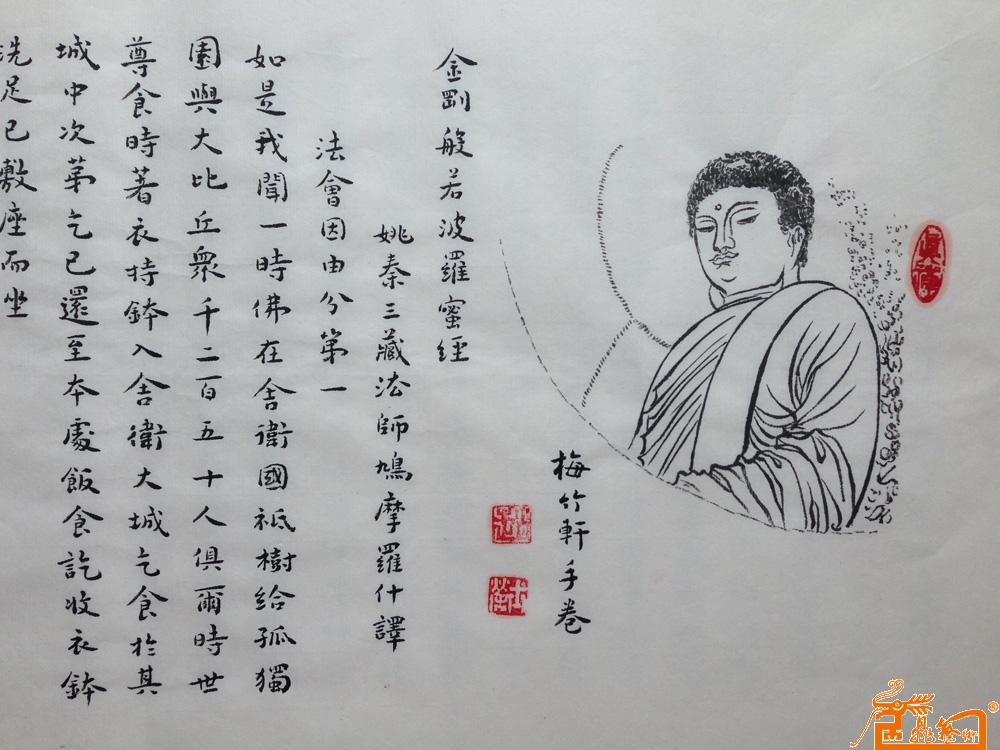 梅竹軒手卷
金剛般若波羅蜜經
姚秦三藏法師鳩摩羅什譯
法會因由分第一
如是我聞一時佛在舍衛國祗樹給孤獨
園與大比丘衆千二百五十人俱爾時世
尊食時著衣持鉢入舍衛大城乞食於其
城中次第乞已還至本處飯食訖收衣鉢
洗足已敷座而坐